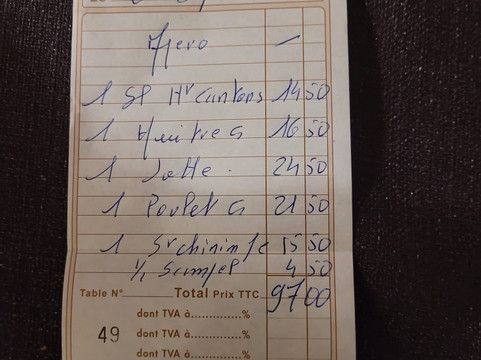 Apero —
1 SP Hr cantons 14 50
1 Huitres 16 50
1 Lotte 24 50
1 Poulet G 21 50
1 St chinin 15 50
1/2 4 50
Table N° Total Prix TTC 97 00
dont TVA à..............%
49 dont TVA à..............%
dont TVA à..............%